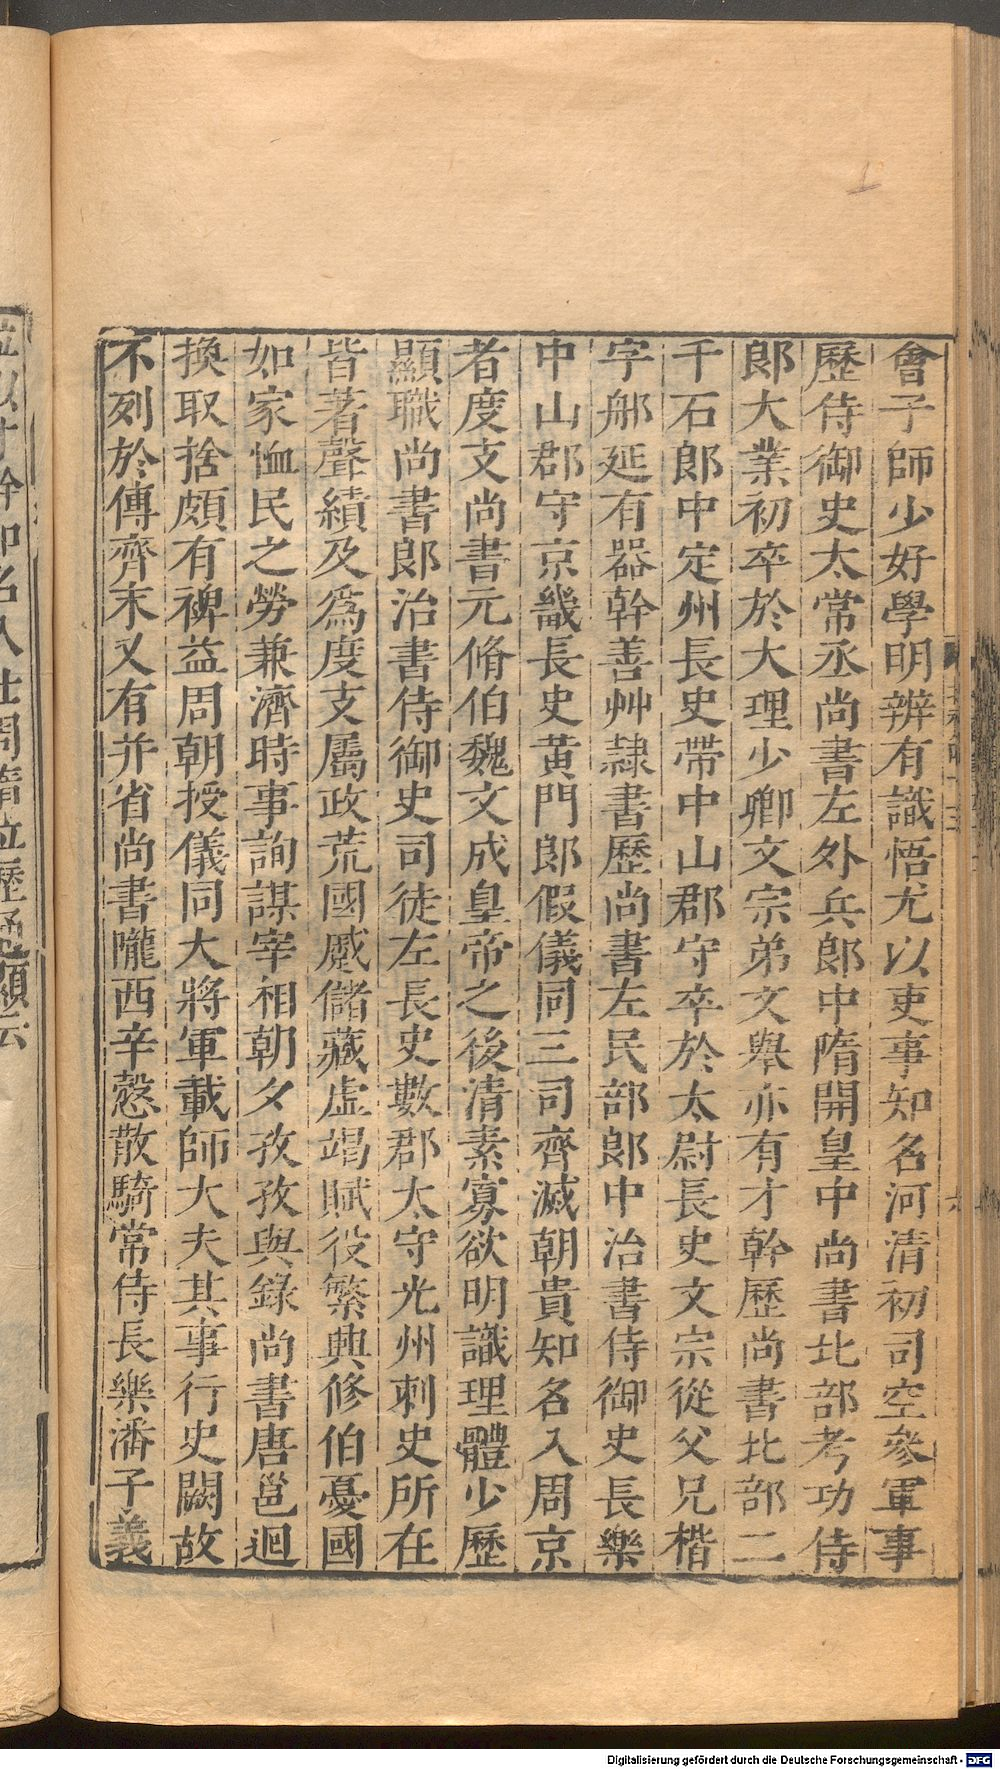 會子師少好學明辨有識悟尤以吏事知名河清初司空參軍事
歷侍御史太常丞尚書左外兵郎中隋開皇中尚書北部考功侍
郎大業初卒於大理少卿文宗弟文舉亦有才幹歷尚書北部二
千石郎中定州長史帶中山郡守卒於太尉長史文宗從父兄楷
字郍延有器幹善艸隷書歷尚書左民部郎中治書侍御史長樂
中山郡守京畿長史黃門郎假儀同三司齊滅朝貴知名入周京
者度支尚書元脩伯魏文成皇帝之後清素寡欲明識理體少歷
顯職尚書郎治書侍御史司徒左長史數郡太守光州刺史所在
皆著聲績及爲度支屬政荒國蹙儲藏虛竭賦役繁興修伯憂國
如家恤民之勞兼濟時事詢謀宰相朝夕孜孜與錄尚書唐邕迴
換取捨頗有裨益周朝授儀同大將軍載師大夫其事行史闕故
不列於傳齊末又有并省尚書隴西辛慤散騎常侍長樂潘子義
並以才幹知名入仕周隋並歷通顯云
Digitalisierung gefördert durch die Deutsche Forschungsgemeinschaft - DFG